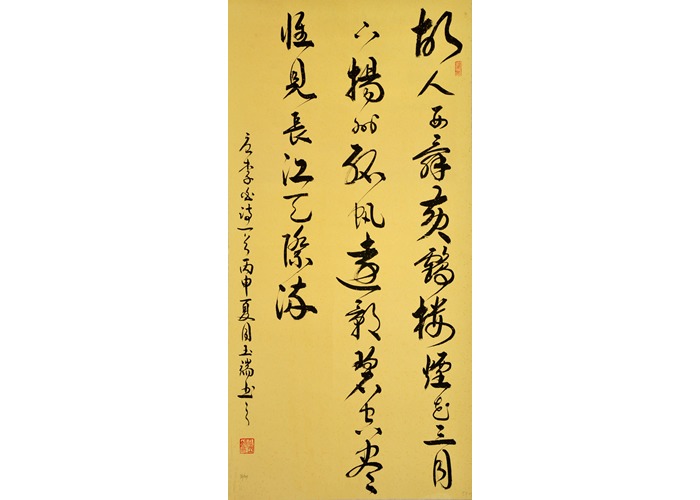 故人西辞黄鹤楼煙花三月
下揚州孤帆遠影碧空尽
惟見長江天際流
唐李白诗一首丙申夏月玉瑞书之